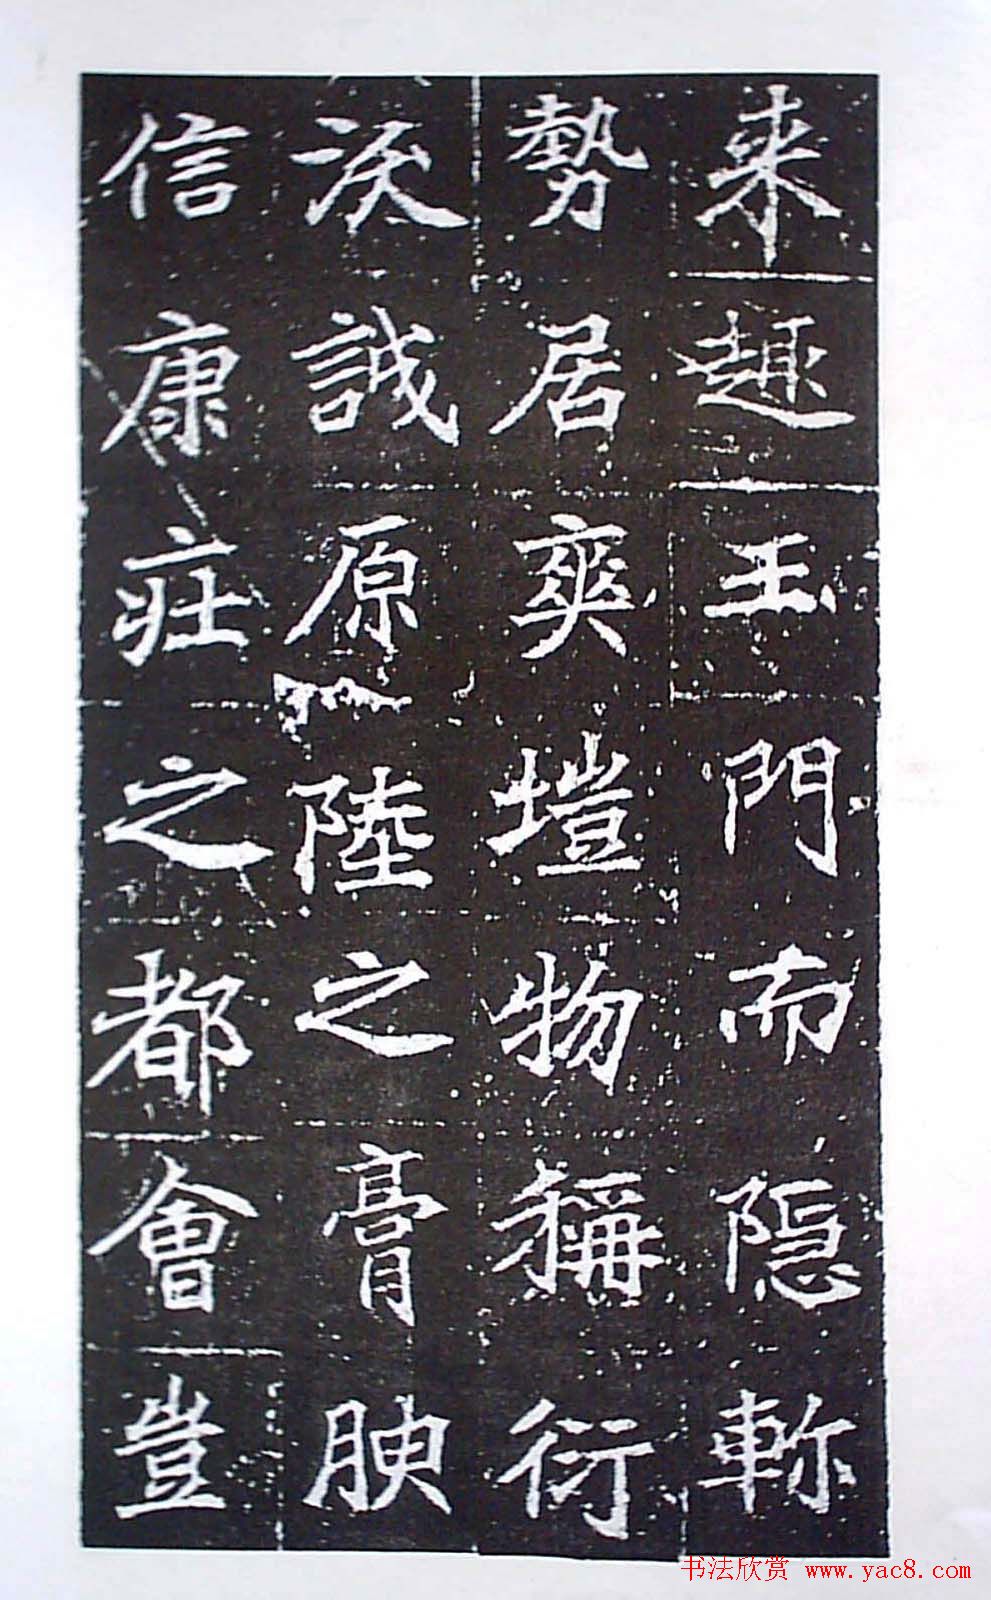 来趍王門而隐軫
勢居爽塏物稱衍
沃誠原陸之膏腴
信康莊之都會豈
书法欣赏 www.yac8.com